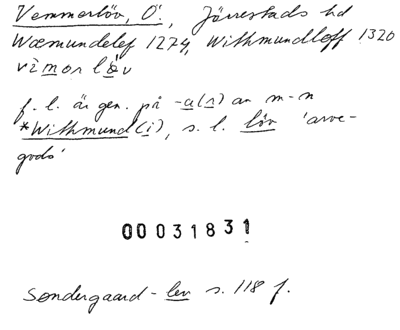 Vemmerlöv, Ö., Järrestads hd
Wæmundelef 1274, Withmundloff 1320
vemorlöv
f. l. är gen. på -a(r) av m-n
*Withmund(i), s. l. löv 'arve-
gods'
00031831
Søndergaard -lev s. 118 f.